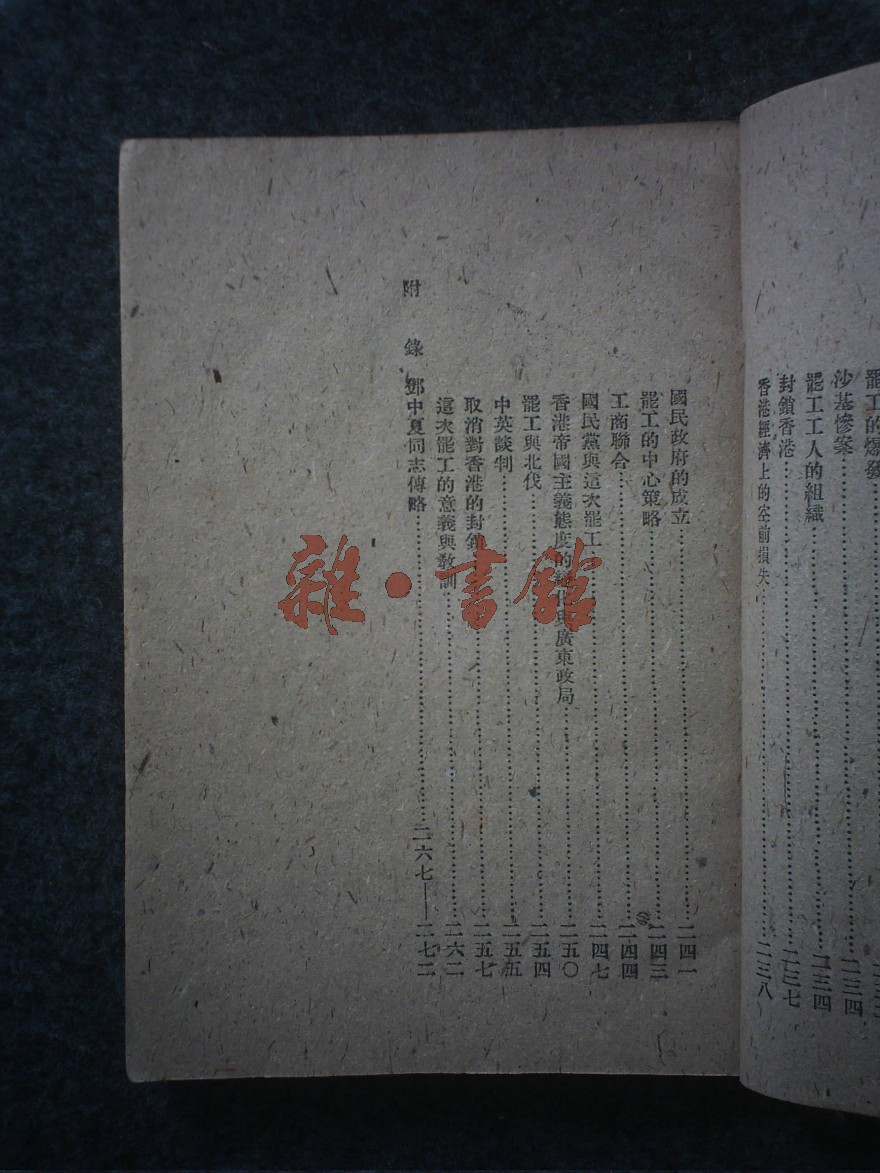 罷工的爆發
沙基慘案……二三四
罷工工人的組織……二三四
封鎖香港……二三七
香港經濟上的空前損失……二三八
國民政府的成立……二四一
罷工的中心策略……二四三
工商聯合……二四四
國民黨與這次罷工……二四七
香港帝國主義態度的 廣東政局……二五〇
罷工與北伐……二五四
中英談判……二五五
取消對香港的封鎖……二五七
這次罷工的意義與教訓……二六二
附錄 鄧中夏同志傳略……二六七——二七二
雜·書館